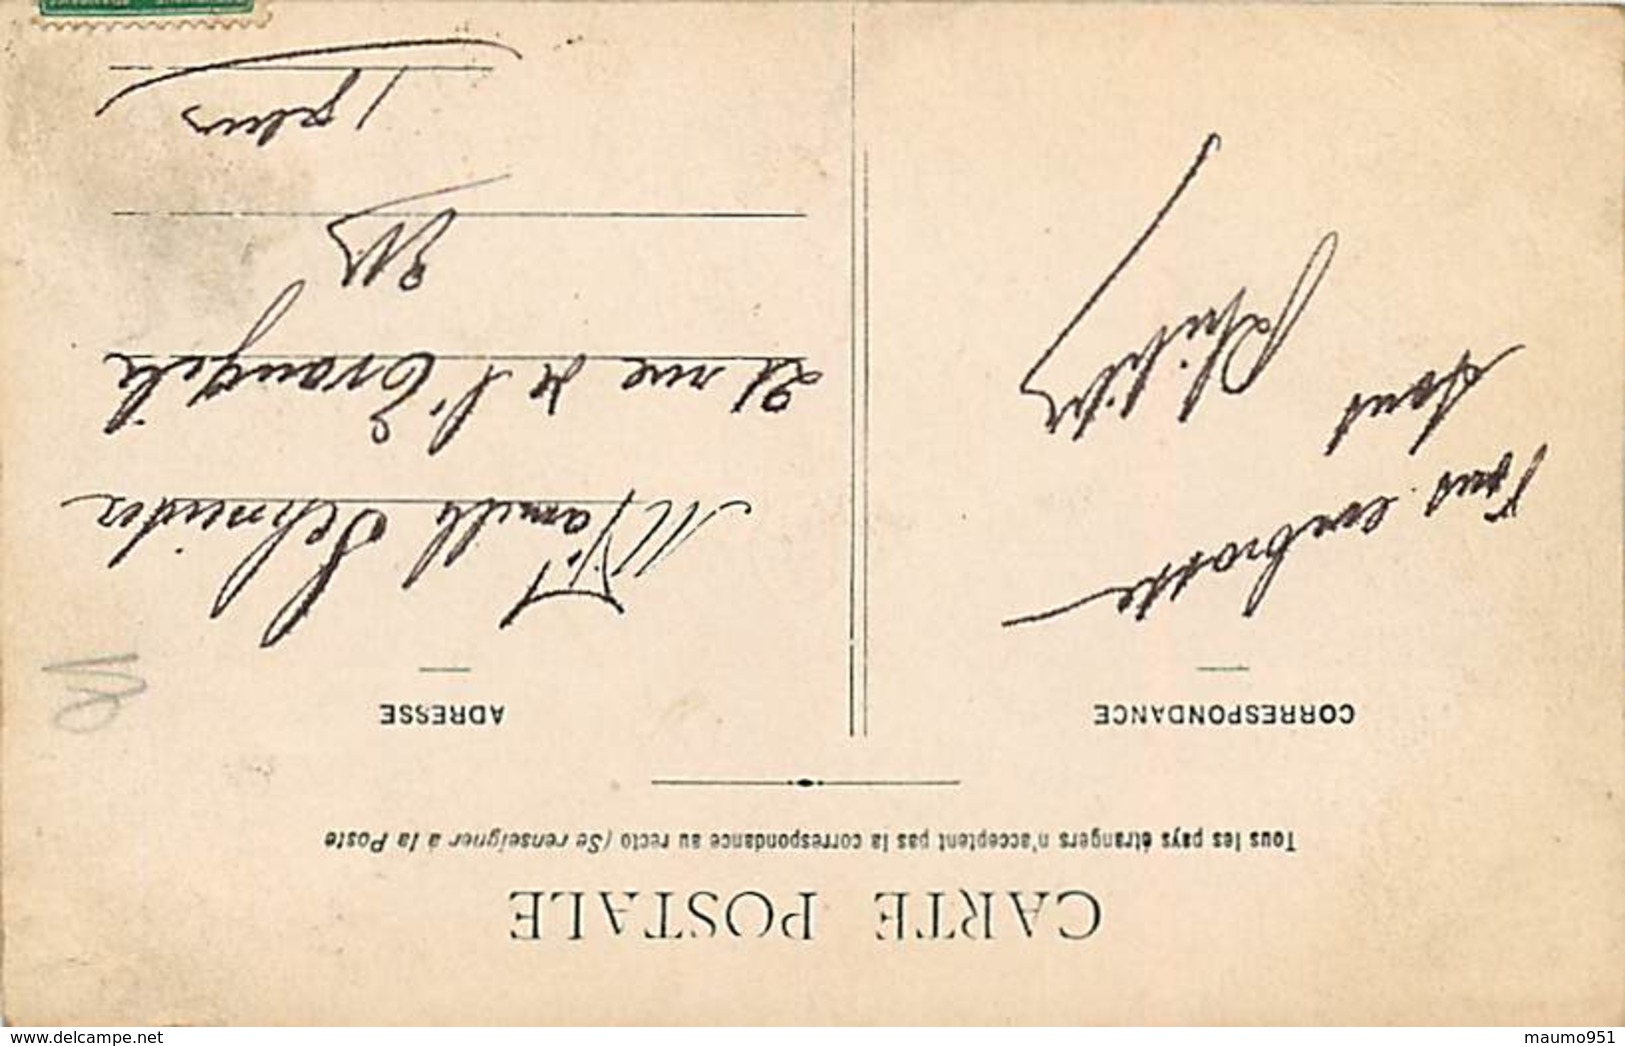 CARTE POSTALE
Tous les pays étrangers n'acceptent pas la correspondance au recto (Se renseigner à la Poste
CORRESPONDANCE
embrasse
tous
ADRESSE
M Famille Schneider
21 rue de l'Evangile
delcampe.net
maumo951